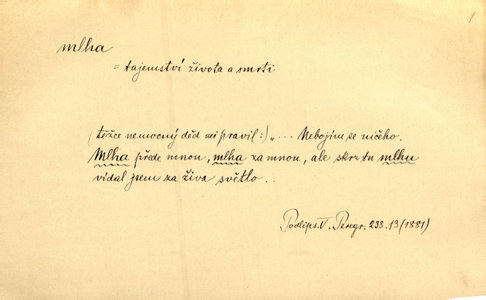 1
mlha
= tajemství života a smrti
(těžce nemocný děd mi pravil:) „... Nebojím se ničeho.
Mlha přede mnou, mlha za mnou, ale skrz tu mlhu
vídal jsem za živa světlo..
Podlips. V. Peregr. 233.13 (1881)